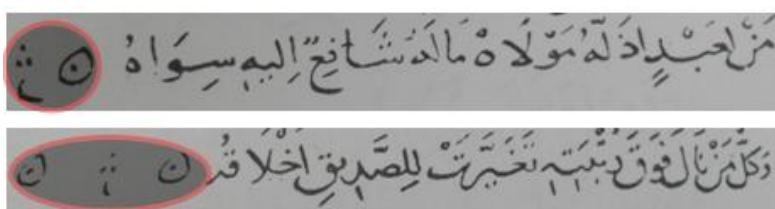 مَنْ لعَبْدٍ اذَلَّهُ مَوْلَاهُ مَا لَهُ شَافِعٌ اِلَيهِ سِوَاهُ ن ؞
وَكُلُّ مَنْ نَالَ فَوْقَ رُتْبَتِهِ تَغَيَّرَتْ لِلصَّدِيقِ اَخْلَاقُهُ ن ؞ ن